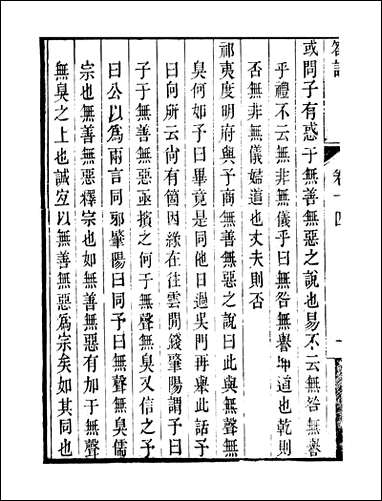 卷十四
一
或問子有惑于無善無惡之說也易不云無咎無譽
乎禮不云無非無儀乎曰無咎無譽坤道也乾則
否無非無儀婦道也丈夫則否
祁夷度明府與予商無善無惡之說曰此與無聲無
臭何如予曰畢竟是同他日過吳門再舉此話予
曰向所云尚有箇因緣在往雲間錢肇陽謂予曰
子于無善無惡亟擯之何于無聲無臭又信之予
曰公以爲兩言同邪肇陽曰同予曰無聲無臭儒
宗也無善無惡釋宗也如無善無惡有加于無聲
無臭之上也誠宜以無善無惡爲宗矣如其同也